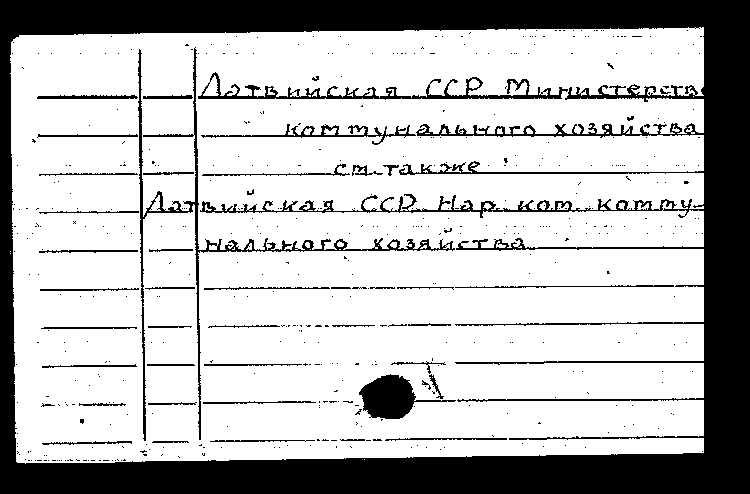 Латвийская ССР Министерство
коммунального хозяйства
см. также
Латвийская ССР Нар. ком. комму-
нального хозяйства